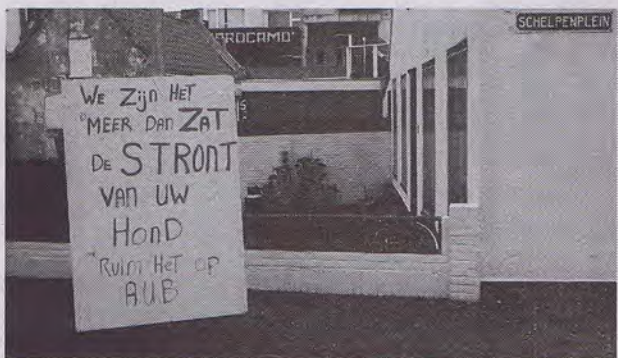 'PROCAMO'
SCHELPENPLEIN
WE Zijn HET
"MEER DAN ZAT
DE STRONT
VAN UW
HonD
"Ruim HeT OP
A.U.B